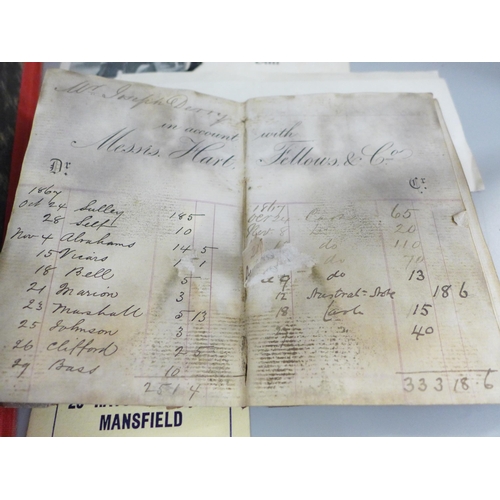 Mr. Joseph
in account with
Messrs. Hart, Fellows, & Co.
Dr.
1867
Oct 24 Sulley 185
28 Self 10
Nov 4 Abrahams 14 5
15 Vicars 1 1
18 Bell 5
21 Marion 3
23 Marshall 5 13
25 Johnson 3
26 Clifford 2 5
29 Bass 10
251 4
Cr.
1867
65
20
do 110
do 70
9 do 13
12 18 6
18 Cash 15
40
333 18 6
MANSFIELD